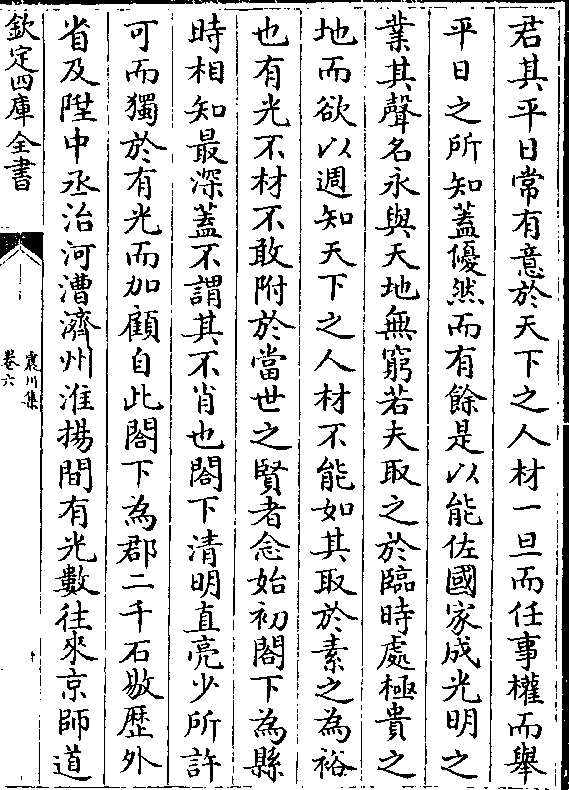 君其平日常有意於天下之人材一旦而任事權而舉
平日之所知蓋優然而有餘是以能佐國家成光明之
業其聲名永與天地無窮若夫取之於臨時處極貴之
地而欲以週知天下之人材不能如其取於素之為裕
也有光不材不敢附於當世之賢者念始初閣下為縣
時相知最深蓋不謂其不肖也閣下清明直亮少所許
可而獨於有光而加顧自此閣下為郡二千石敭歴外
省及陞中丞治河漕濟州淮揚間有光數往來京師道
欽定四庫全書
震川集
卷六